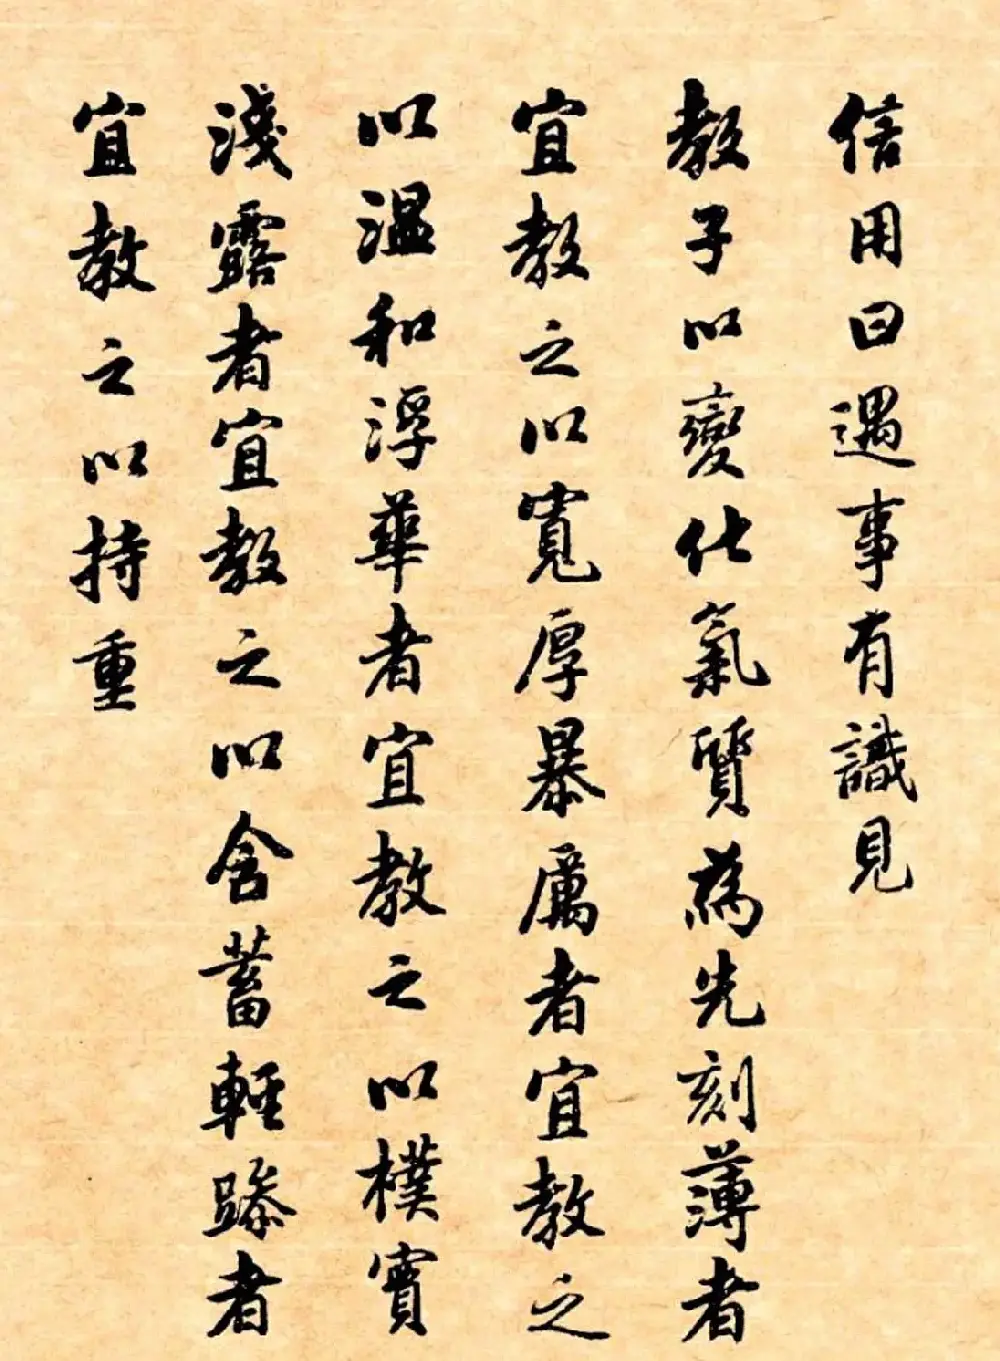 信用曰遇事有識見
教子以變化氣質為先刻薄者
宜教之以寬厚暴厲者宜教之
以溫和浮華者宜教之以樸實
淺露者宜教之以含蓄輕躁者
宜教之以持重